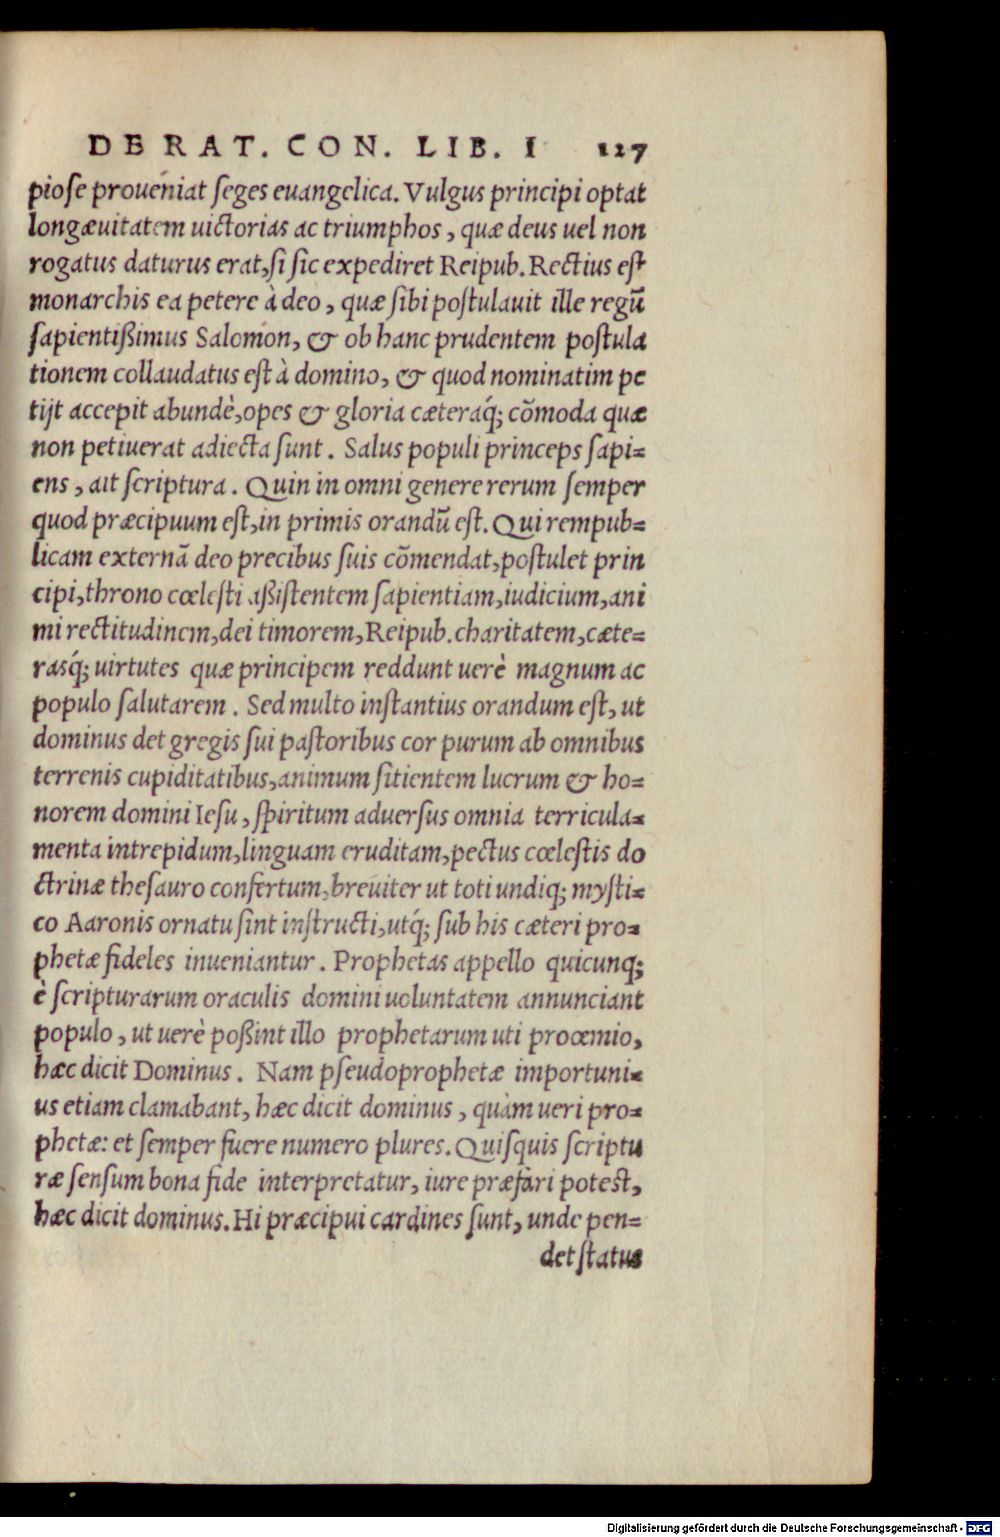 DE RAT. CON. LIB. I 127
piose proueniat seges euangelica. Vulgus principi optat
longæuitatem uictorias ac triumphos, quæ deus uel non
rogatus daturus erat, si sic expediret Reipub. Rectius est
monarchis ea petere à deo, quæ sibi postulauit ille regū
sapientißimus Salomon, & ob hanc prudentem postula
tionem collaudatus est à domino, & quod nominatim pe
tijt accepit abundè, opes & gloria cæteraq́; cōmoda quæ
non petiuerat adiecta sunt. Salus populi princeps sapi=
ens, ait scriptura. Quin in omni genere rerum semper
quod præcipuum est, in primis orandū est. Qui rempub=
licam externā deo precibus suis cōmendat, postulet prin
cipi, throno cœlesti aßistentem sapientiam, iudicium, ani
mi rectitudinem, dei timorem, Reipub. charitatem, cæte=
rasq́; uirtutes quæ principem reddunt uerè magnum ac
populo salutarem. Sed multo instantius orandum est, ut
dominus det gregis sui pastoribus cor purum ab omnibus
terrenis cupiditatibus, animum sitientem lucrum & ho=
norem domini Iesu, spiritum aduersus omnia terricula=
menta intrepidum, linguam eruditam, pectus cœlestis do
ctrinæ thesauro confertum, breuiter ut toti undiq; mysti=
co Aaronis ornatu sint instructi, utq́; sub his cæteri pro=
phetæ fideles inueniantur. Prophetas appello quicunq;
è scripturarum oraculis domini uoluntatem annunciant
populo, ut uerè poßint illo prophetarum uti proœmio,
hæc dicit Dominus. Nam pseudoprophetæ importuni=
us etiam clamabant, hæc dicit dominus, quàm ueri pro=
phetæ: et semper fuere numero plures. Quisquis scriptu
ræ sensum bona fide interpretatur, iure præfari potest,
hæc dicit dominus. Hi præcipui cardines sunt, unde pen=
det status
Digitalisierung gefördert durch die Deutsche Forschungsgemeinschaft - DFG